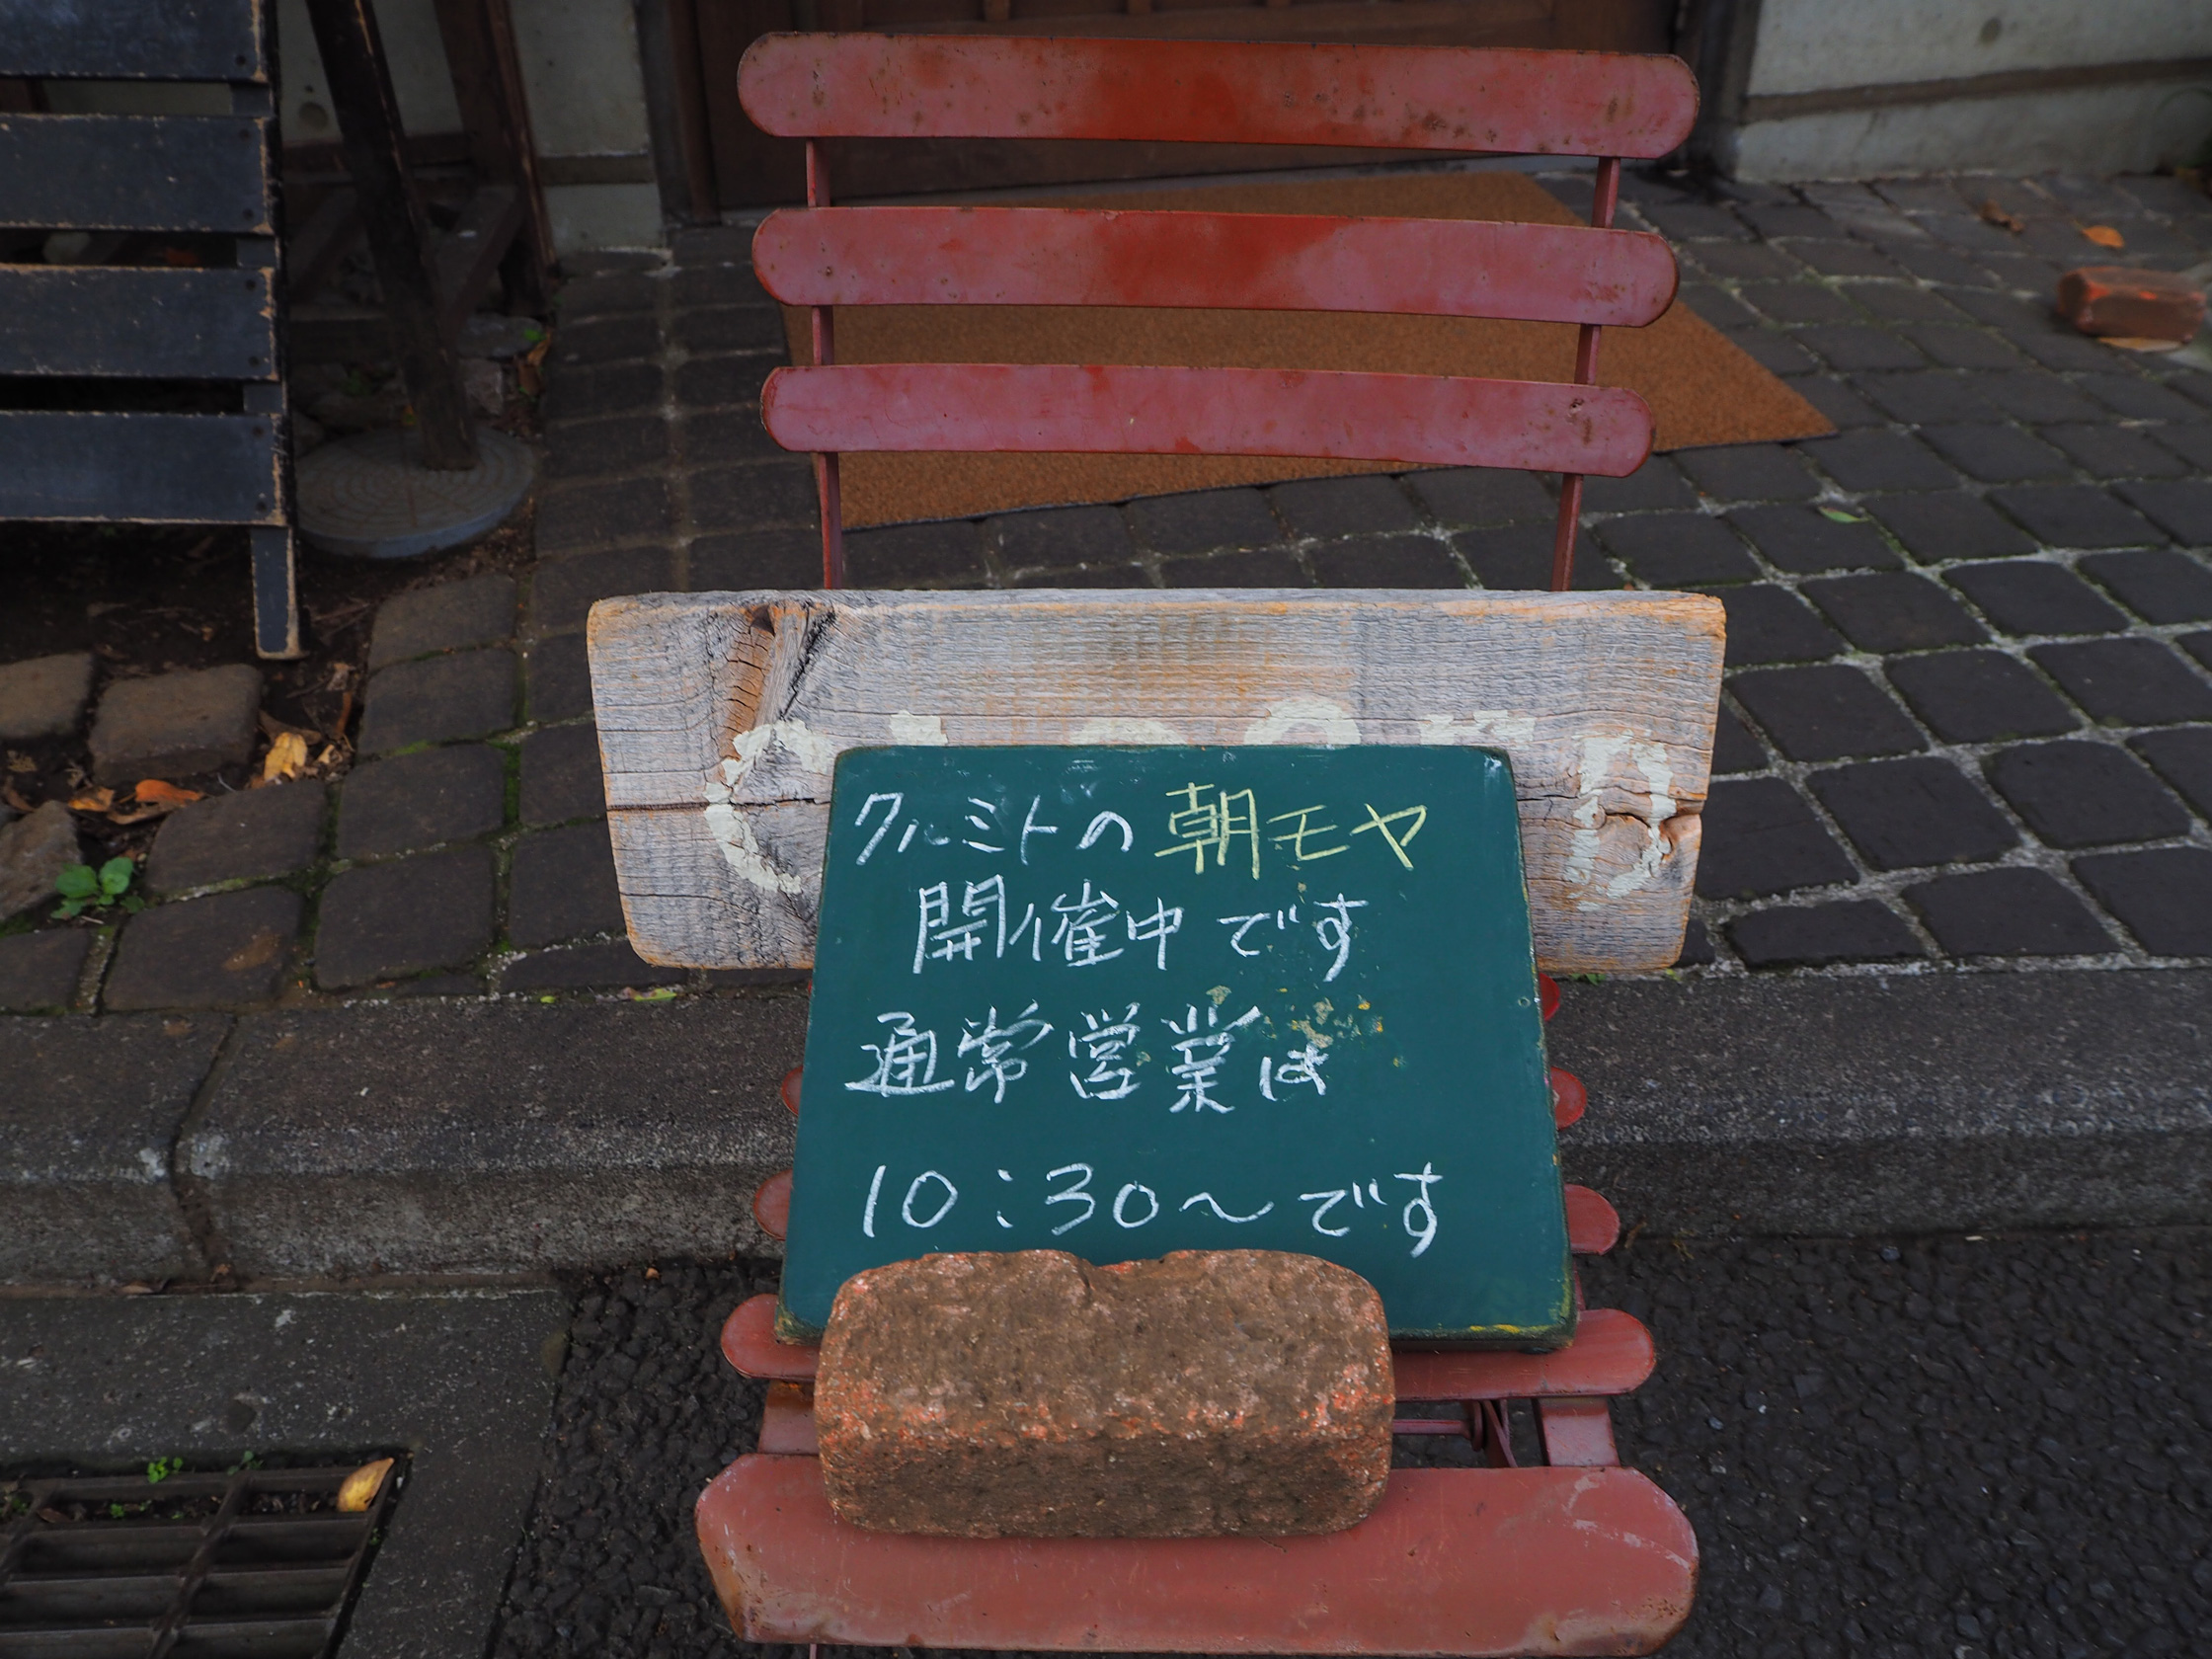 CLOSED
クルミドの朝モヤ
開催中です
通常営業は
10:30〜です